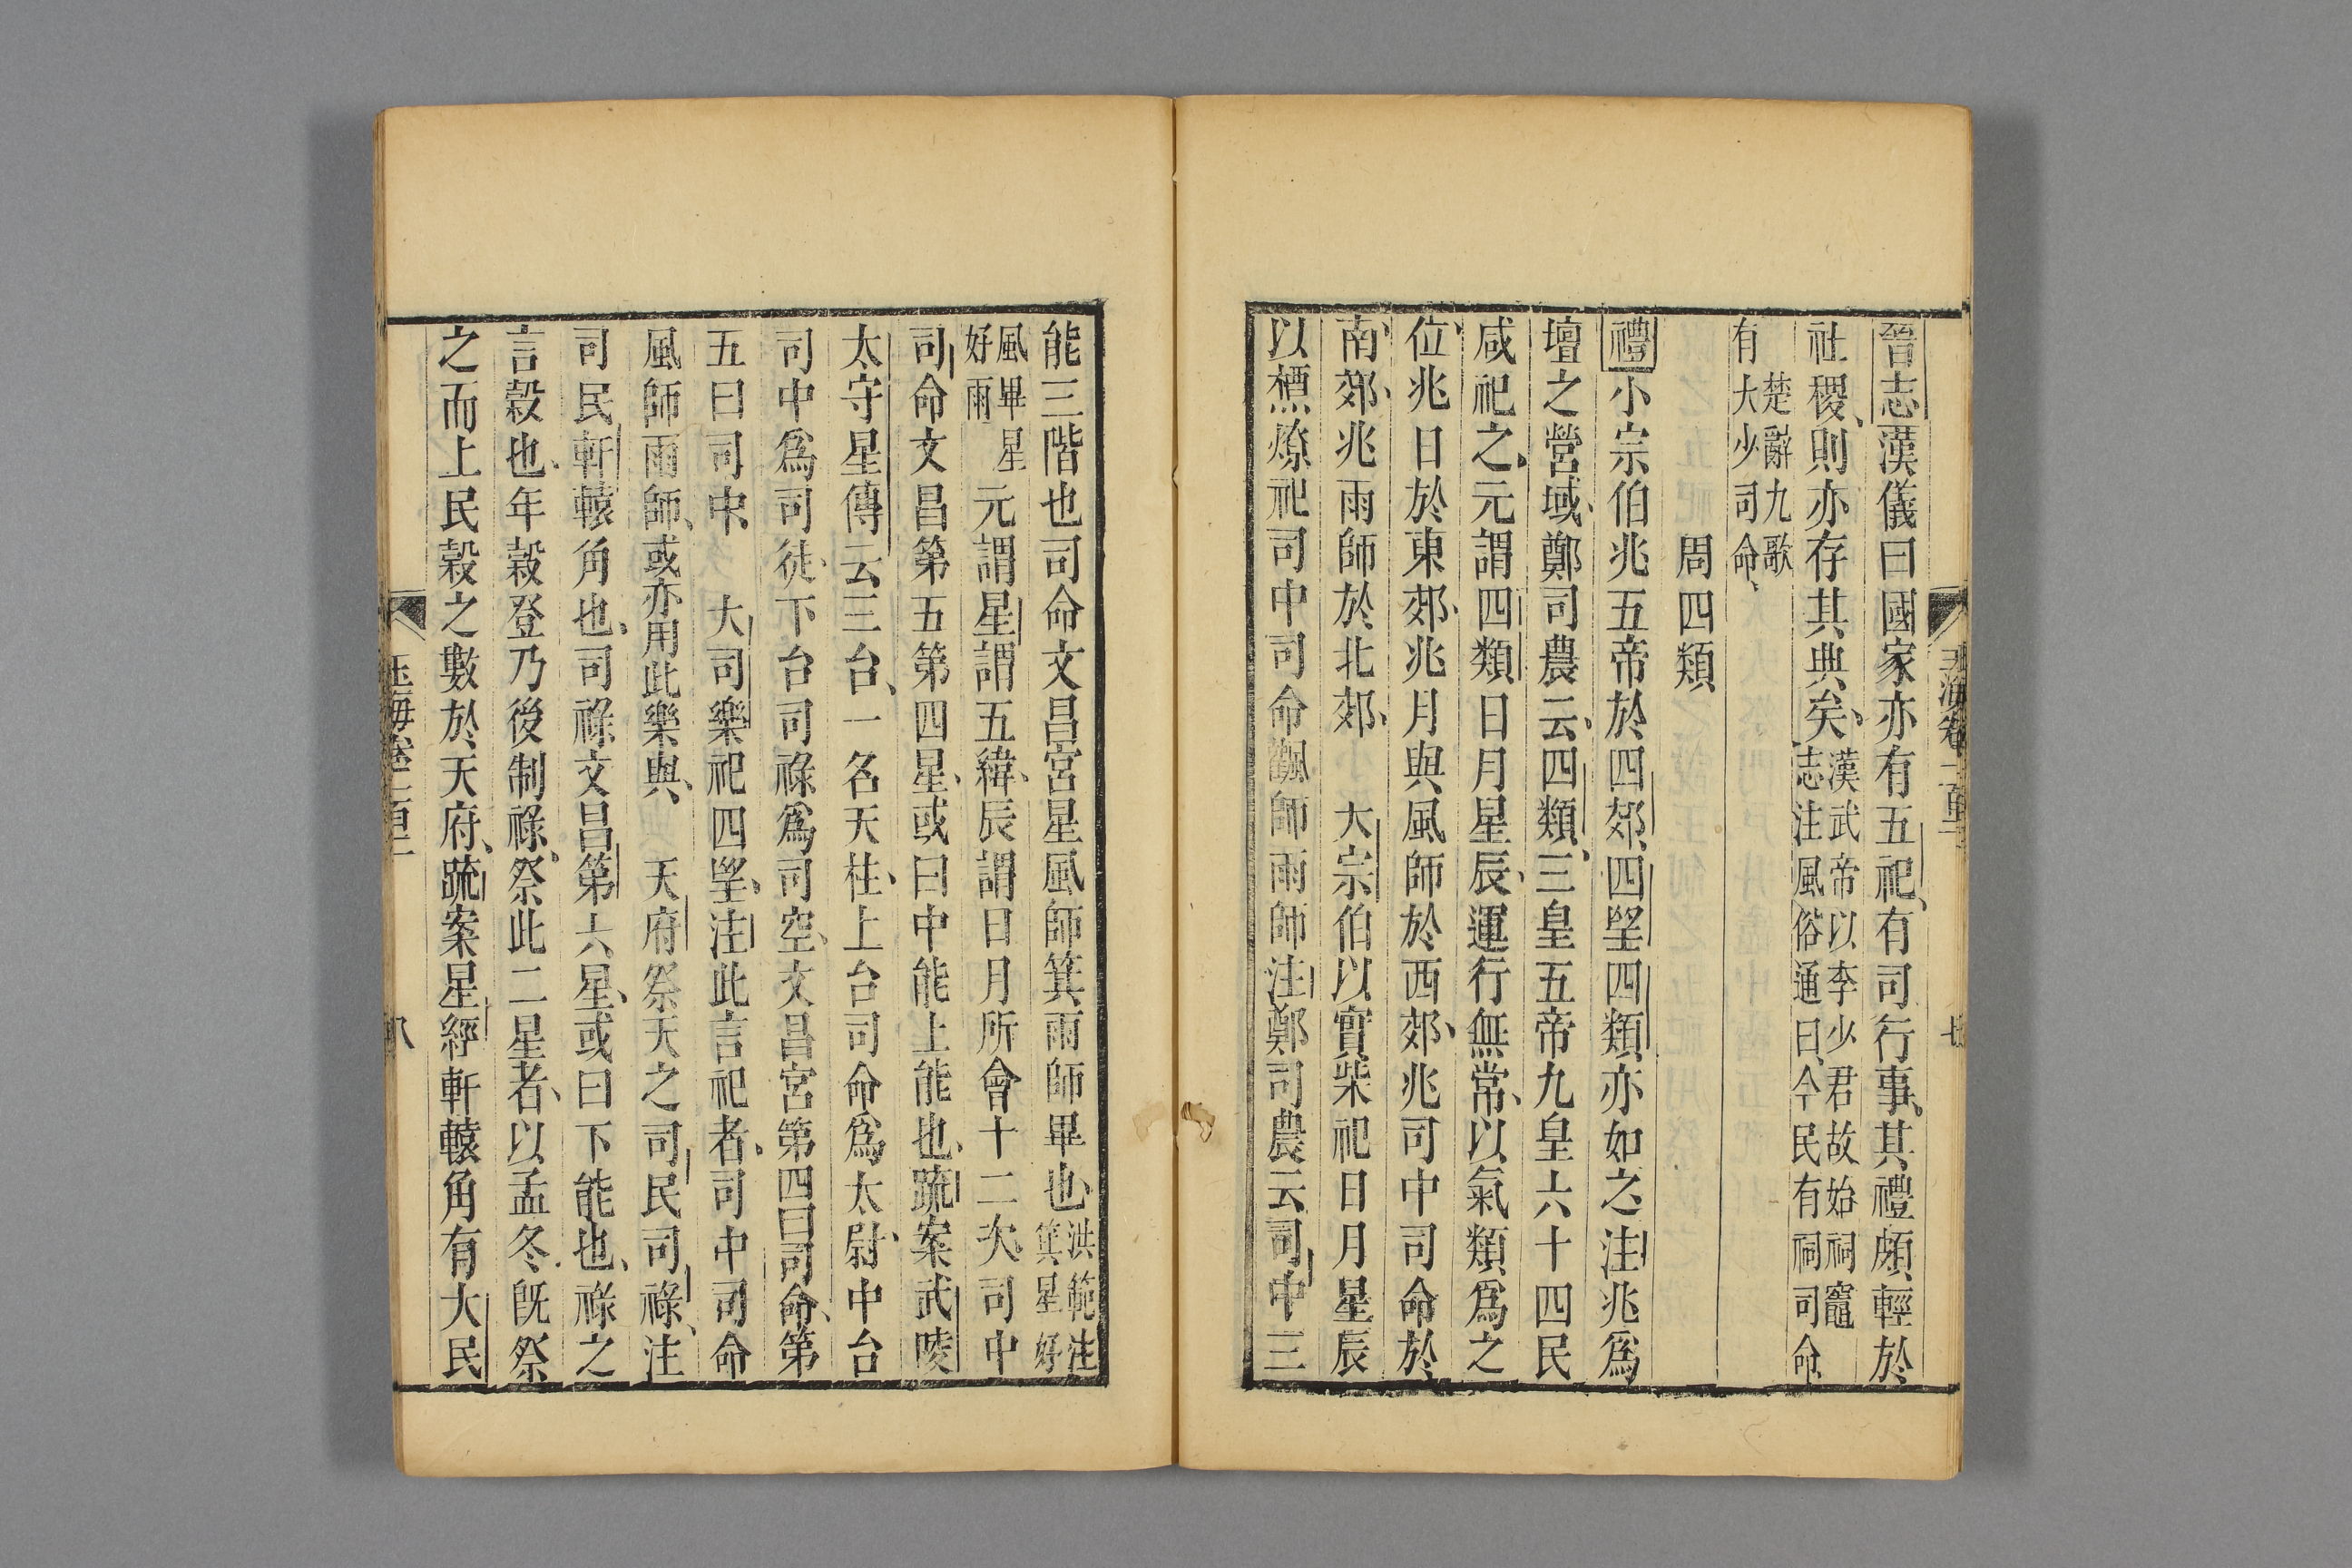 晉志漢儀曰國家亦有五祀有司行事其禮頗輕於
社稷則亦存其典矣漢武帝以李少君故始祠竈
志注風俗通曰今民有祠司命
楚辭九歌
有大少司命
周四類
禮小宗伯兆五帝於四郊四望四類亦如之注兆爲
壇之營域鄭司農云四類三皇五帝九皇六十四民
咸祀之元謂四類日月星辰運行無常以氣類爲之
位兆日於東郊兆月與風師於西郊兆司中司命於
南郊兆雨師於北郊 大宗伯以實柴祀日月星辰
以槱燎祀司中司命飌師雨師注鄭司農云司中三
能三階也司命文昌宮星風師箕雨師畢也洪範注
箕星好
風畢星
好雨
元謂星謂五緯辰謂日月所會十二次司中
司命文昌第五第四星或曰中能上能也疏案武陵
太守星傳云三台一名天柱上台司命爲太尉中台
司中爲司徒下台司祿爲司空文昌宮第四曰司命第
五曰司中 大司樂祀四望注此言祀者司中司命
風師雨師或亦用此樂與 天府祭天之司民司祿注
司民軒轅角也司祿文昌第六星或曰下能也祿之
言穀也年穀登乃後制祿祭此二星者以孟冬既祭
之而上民穀之數於天府疏案星經軒轅角有大民
玉海卷一百二
八